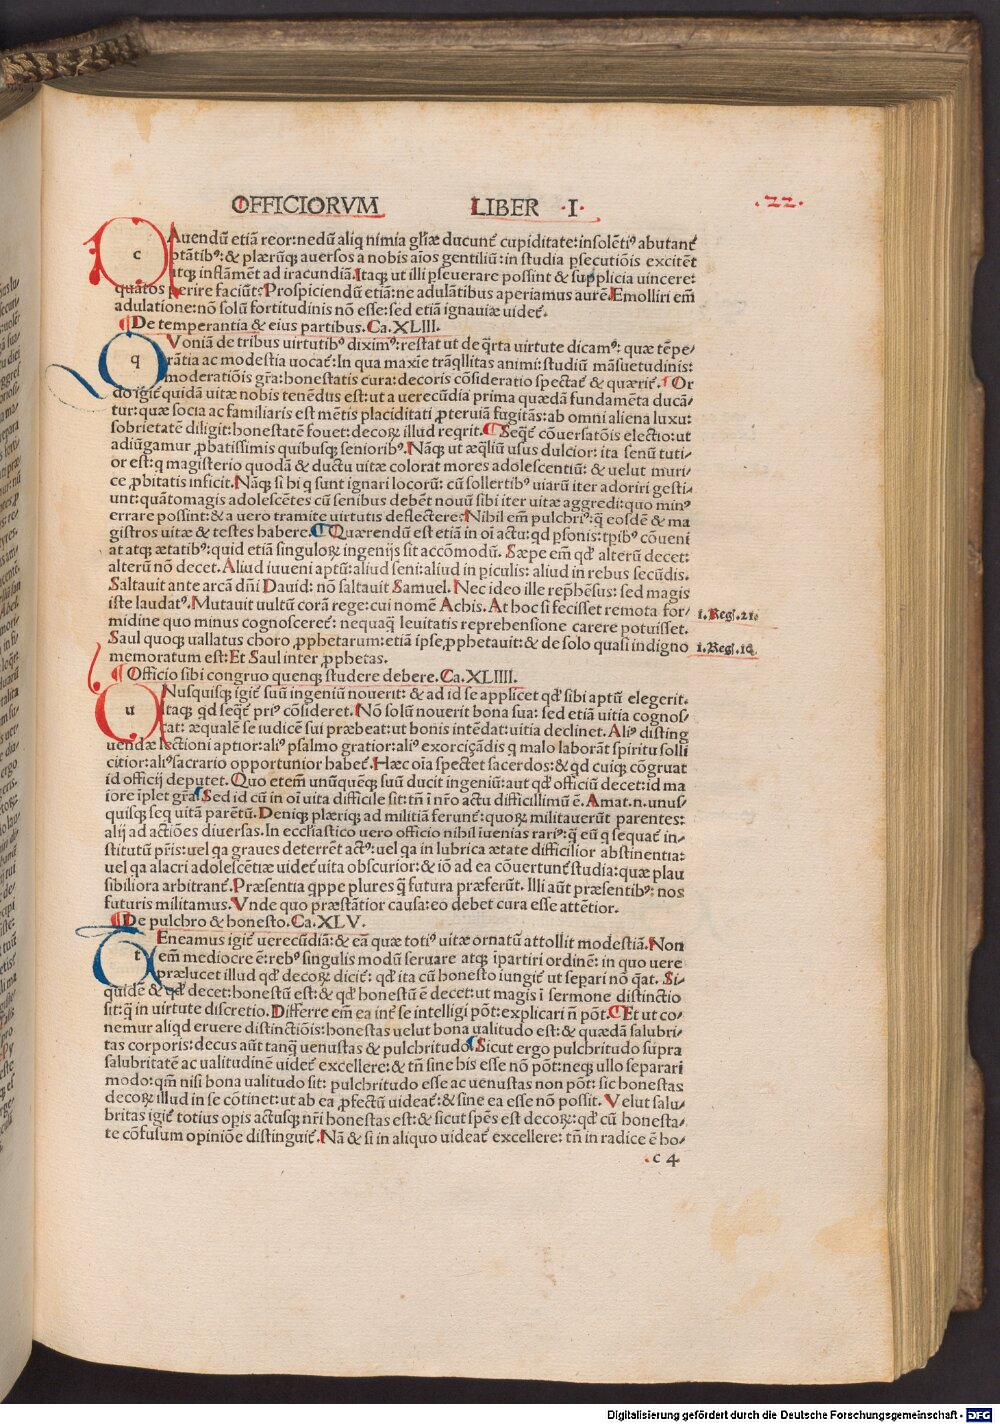 OFFICIORVM LIBER ·I· .22.
cAuendũ etiã reor: nedũ aliq nimia gl'iæ ducunt̃ cupiditate: insolẽtiꝰ abutant̃
ptãtibꝰ: & plærũqꝫ auersos a nobis aĩos gentiliũ: in studia psecutiõis excitẽt
atqꝫ inflãmẽt ad iracundiã. Itaqꝫ ut illi pseuerare possint & supplicia uincere:
quãtos perire faciũt: Prospiciendũ etiã: ne adulãtibus aperiamus aurẽ. Emolliri em̃
adulatione: nõ solũ fortitudinis nõ esse: sed etiã ignauiæ uidet̃.
¶De temperantia & eius partibus. Ca. XLIII.
qVoniã de tribus uirtutibꝰ diximꝰ: restat ut de q̃rta uirtute dicamꝰ: quæ tẽpe/
rãtia ac modestia uocat̃: In qua maxĩe trãqllitas animi: studiũ mãsuetudinis:
moderatiõis gr̃a: honestatis cura: decoris cõsideratio spectat̃ & quærit̃. ¶Or
do igit̃ quidã uitæ nobis tenẽdus est: ut a uerecũdia prima quædã fundamẽta ducã/
tur: quæ socia ac familiaris est mẽtis placiditati ꝓteruiã fugitãs: ab omni aliena luxu:
sobrietatẽ diligit: honestatẽ fouet: decoꝝ illud reqrit. ¶Seqt̃ cõuersatõis electio: ut
adiũgamur ꝓbatissimis quibusqꝫ senioribꝰ. Nãqꝫ ut æq̃liũ usus dulcior: ita senũ tuti/
or est: q magisterio quodã & ductu uitæ colorat mores adolescentiũ: & uelut muri/
ce ꝓbitatis inficit. Nãqꝫ si hi q sunt ignari locorũ: cũ sollertibꝰ uiarũ iter adoriri gesti/
unt: quãtomagis adolescẽtes cũ senibus debẽt nouũ sibi iter uitæ aggredi: quo minꝰ
errare possint: & a uero tramite uirtutis deflectere: Nihil em̃ pulchriꝰ: q̃ eosdẽ & ma
gistros uitæ & testes habere. ¶Quærendũ est etiã in oĩ actu: qd psonis: tpibꝰ cõueni
at atqꝫ ætatibꝰ: quid etiã singuloꝝ ingenijs sit accõmodũ. Sæpe em̃ qđ alterũ decet:
alterũ nõ decet. Aliud iuueni aptũ: aliud seni: aliud in piculis: aliud in rebus secũdis.
Saltauit ante arcã dñi Dauid: nõ saltauit Samuel. Nec ideo ille rep̃hẽsus: sed magis
iste laudatꝰ. Mutauit uultũ corã rege: cui nomẽ Achis. At hoc si fecisset remota for/
midine quo minus cognosceret̃: nequaq̃ leuitatis reprehensione carere potuisset.
Saul quoqꝫ uallatus choro ꝓphetarum: etiã ipse ꝓphetauit: & de solo quasi indigno
memoratum est: Et Saul inter ꝓphetas.
1. Reg. 21.
1. Reg. 19.
¶Officio sibi congruo quenqꝫ studere debere. Ca. XLIIII.
uNusquisqꝫ igit̃ suũ ingeniũ nouerit: & ad id se applicet qđ sibi aptũ elegerit.
Itaqꝫ qd seqt̃ priꝰ cõsideret. Nõ solũ nouerit bona sua: sed etiã uitia cognos/
cat: æqualẽ se iudicẽ sui præbeat: ut bonis intẽdat: uitia declinet. Aliꝰ disting
uendæ lectioni aptior: aliꝰ psalmo gratior: aliꝰ exorciçãdis q malo laborãt spiritu solli
citior: aliꝰ sacrario opportunior habet̃. Hæc oĩa spectet sacerdos: & qd cuiqꝫ cõgruat
id officij deputet. Quo etem̃ unũquẽqꝫ suũ ducit ingeniũ: aut qđ officiũ decet: id ma
iore ĩplet gr̃a. ¶Sed id cũ in oĩ uita difficile sit: tñ ĩ nr̃o actu difficillimũ ẽ. Amat. n. unus/
quisqꝫ seq uitã parẽtũ. Deniqꝫ plæriqꝫ ad militiã ferunt̃: quoꝝ militauerũt parentes:
alij ad actiões diuersas. In eccl'iastico uero officio nihil iuenias rariꝰ: q̃ eũ q sequat̃ in/
stitutũ pr̃is: uel qa graues deterrẽt actꝰ: uel qa in lubrica ætate difficilior abstinentia:
uel qa alacri adolescẽtiæ uidet̃ uita obscurior: & iõ ad ea cõuertunt̃ studia: quæ plau
sibiliora arbitrant̃. Præsentia qppe plures q̃ futura præferũt. Illi aũt præsentibꝰ: nos
futuris militamus. Vnde quo præstãtior causa: eo debet cura esse attẽtior.
¶De pulchro & honesto. Ca. XLV.
tEneamus igit̃ uerecũdiã: & eã quæ totiꝰ uitæ ornatũ attollit modestiã. Non
em̃ mediocre ẽ: rebꝰ singulis modũ seruare atqꝫ ĩpartiri ordinẽ: in quo uere
prælucet illud qđ decoꝝ dicit̃: qđ ita cũ honesto iungit̃ ut separi nõ q̃at. Si/
quidẽ & qđ decet: honestũ est: & qđ honestũ ẽ decet: ut magis ĩ sermone distinctio
sit: q̃ in uirtute discretio. Differre em̃ ea int̃ se intelligi põt: explicari ñ põt. ¶Et ut co/
nemur aliqd eruere distinctiõis: honestas uelut bona ualitudo est: & quædã salubri/
tas corporis: decus aũt tanq̃ uenustas & pulchritudo. ¶Sicut ergo pulchritudo supra
salubritatẽ ac ualitudinẽ uidet̃ excellere: & tñ sine his esse nõ põt: neqꝫ ullo separari
modo: qm̃ nisi bona ualitudo sit: pulchritudo esse ac uenustas non põt: sic honestas
decoꝝ illud in se cõtinet: ut ab ea ꝓfectũ uideat̃: & sine ea esse nõ possit. Velut salu/
britas igit̃ totius opis actusqꝫ nr̃i honestas est: & sicut spẽs est decoꝝ: qđ cũ honesta/
te cõfusum opiniõe distinguit̃. Nã & si in aliquo uideat̃ excellere: tñ in radice ẽ ho/
.c 4
Digitalisierung gefördert durch die Deutsche Forschungsgemeinschaft - DFG